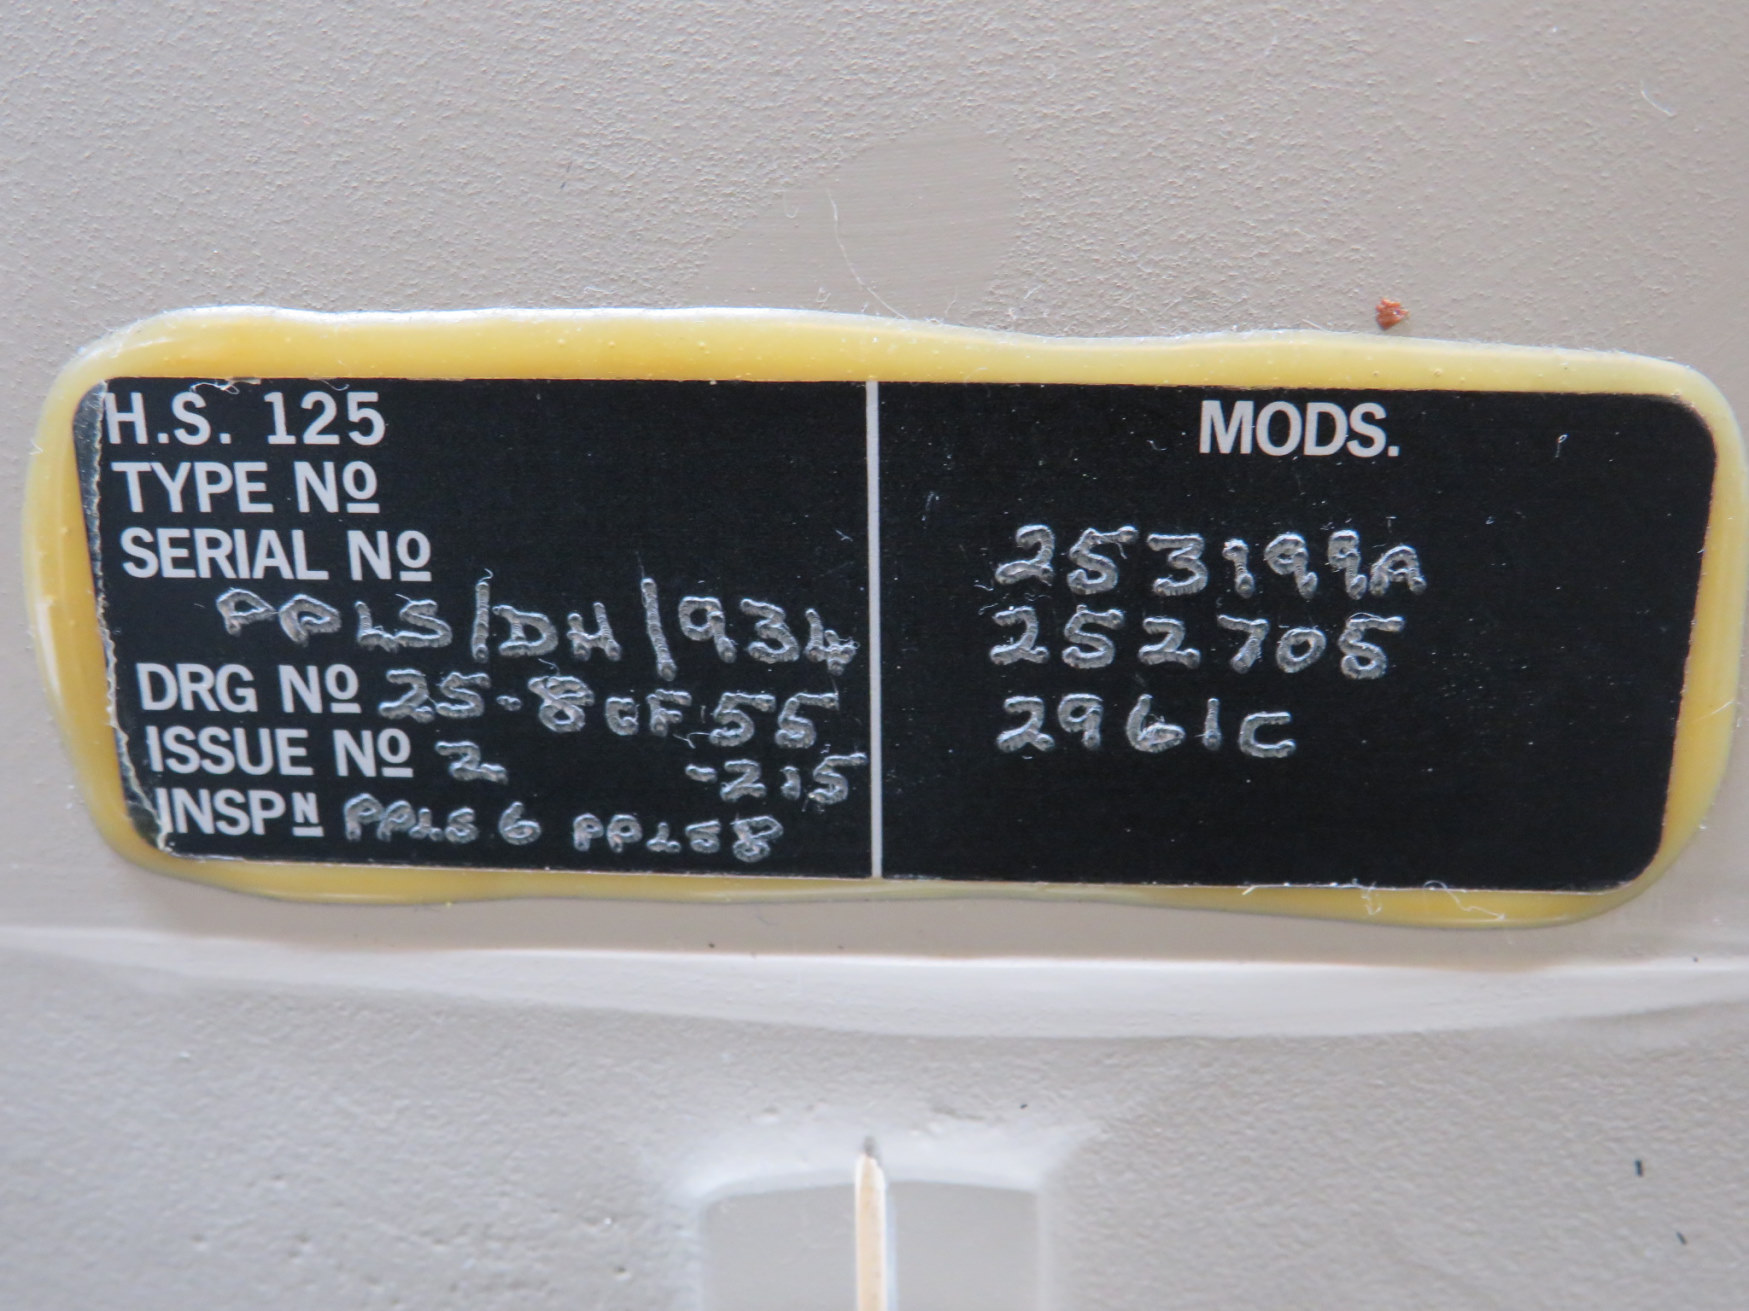 H.S. 125
TYPE Nº
SERIAL Nº
PPLS/DH/934
DRG Nº 25-8CF55
ISSUE Nº 2 -215
INSPN PPLS 6 PPLS 8
MODS.
253199A
252705
2961C